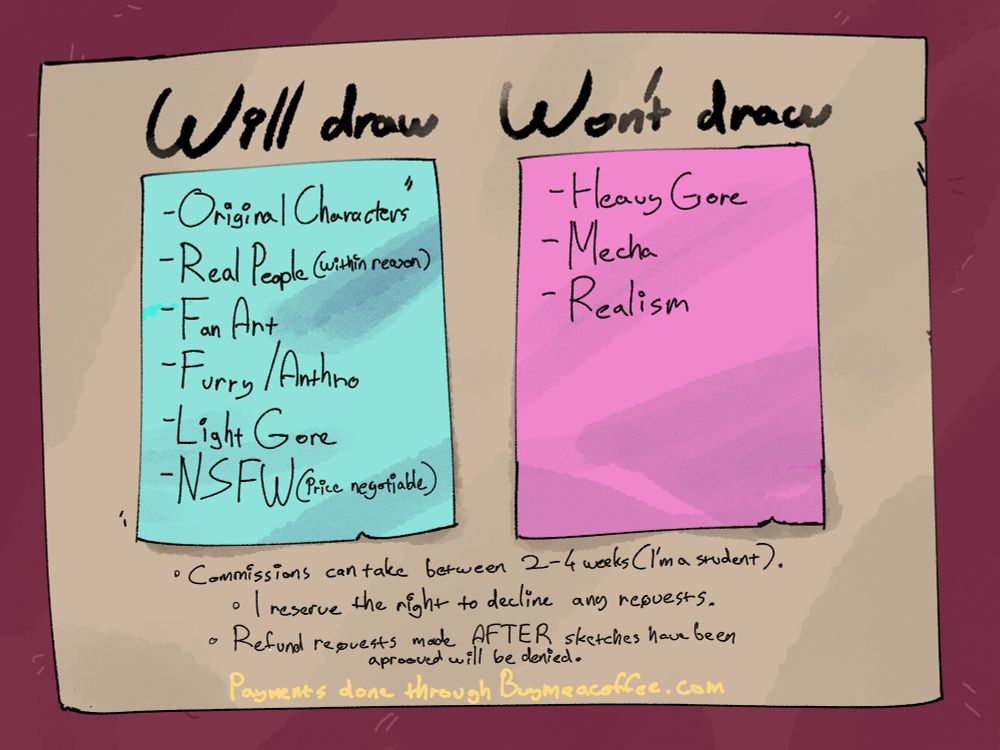 Will draw
- Original Characters
- Real People (within reason)
- Fan Art
- Furry / Anthro
- Light Gore
- NSFW (Price negotiable)
Won't draw
- Heavy Gore
- Mecha
- Realism
° Commissions can take between 2-4 weeks (I'm a student).
° I reserve the right to decline any requests.
° Refund requests made AFTER sketches have been
aprooved will be denied.
Payments done through Buymeacoffee.com